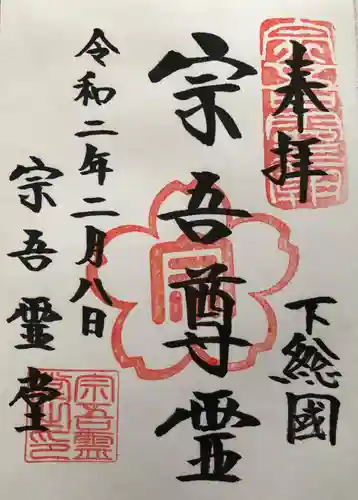 奉拝
下総國
宗吾尊霊
令和二年二月八日
宗吾霊堂